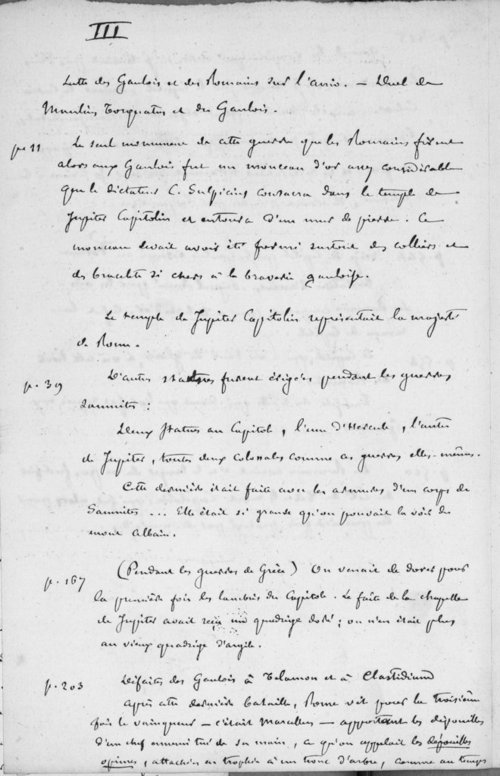 III
Lutte des Gaulois et des Romains sur l'Anio. — Duel de
Manlius Torquatus et du Gaulois.
p. 11 Le seul monument de cette guerre que les Romains firent
alors aux Gaulois fut un monceau d'or assez considérable
que le dictateur C. Sulpicius consacra dans le temple de
Jupiter Capitolin et entoura d'un mur de pierre. Ce
monceau devait avoir été formé surtout des colliers et
des bracelets si chers à la braverie gauloise.
Le temple de Jupiter Capitolin représentait la majesté
de Rome.
p. 39 D'autres statues furent érigées pendant les guerres
Samnites :
Deux statues au Capitole, l'une d'Hercule, l'autre
de Jupiter, toutes deux colossales comme ces guerres elles-mêmes.
Cette dernière était faite avec les armures d'un corps de
Samnites ... Elle était si grande qu'on pouvait la voir du
mont Albain.
p. 167 (Pendant les guerres de Grèce) On venait de dorer pour
la première fois les lambris du Capitole. Le faîte de la chapelle
de Jupiter avait reçu un quadrige doré ; on n'en était plus
au vieux quadrige d'argile.
p. 203 Défaites des Gaulois à Télamon et à Clastidium
Après cette dernière bataille, Rome vit pour la troisième
fois le vainqueur — c'était Marcellus — apportant les dépouilles
d'un chef ennemi tué de sa main, ce qu'on appelait les dépouilles
opimes, attachées en trophée à un tronc d'arbre, comme au temps